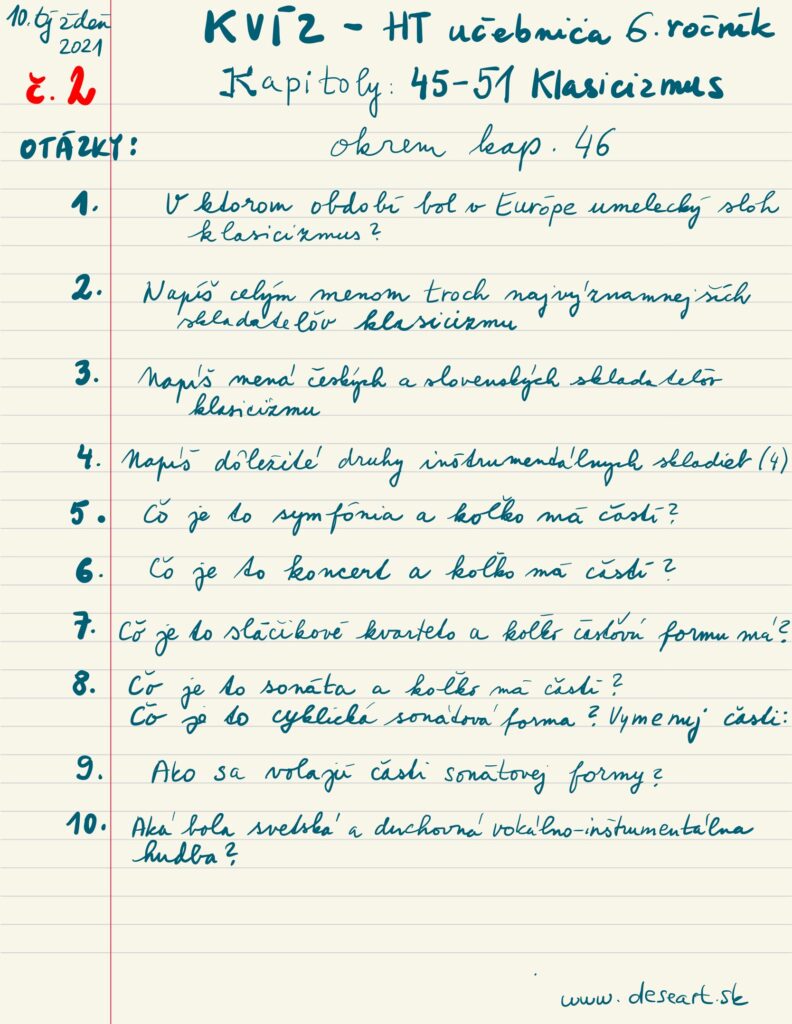 10. týždeň
2021
č. 2
KVÍZ - HT učebnica 6. ročník
Kapitoly: 45-51 Klasicizmus
OTÁZKY: okrem kap. 46
1. V ktorom období bol v Európe umelecký sloh
klasicizmus?
2. Napíš celým menom troch najvýznamnejších
skladateľov klasicizmu
3. Napíš mená českých a slovenských skladateľov
klasicizmu
4. Napíš dôležité druhy inštrumentálnych skladieb (4)
5. Čo je to symfónia a koľko má častí?
6. Čo je to koncert a koľko má častí?
7. Čo je to sláčikové kvarteto a koľko časťovú formu má?
8. Čo je to sonáta a koľko má častí?
Čo je to cyklická sonátová forma? Vymenuj časti:
9. Ako sa volajú časti sonátovej formy?
10. Aká bola svetská a duchovná vokálno-inštrumentálna
hudba?
www.deseart.sk